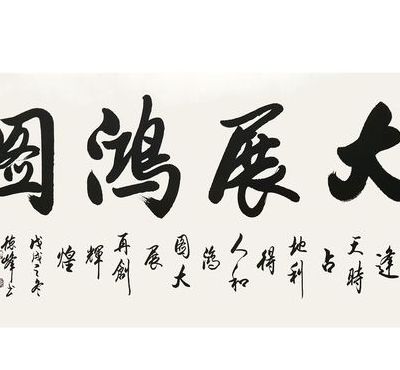 大展鴻圖
逢天時占地利得人和鴻圖大展再創輝煌
戊戌之冬